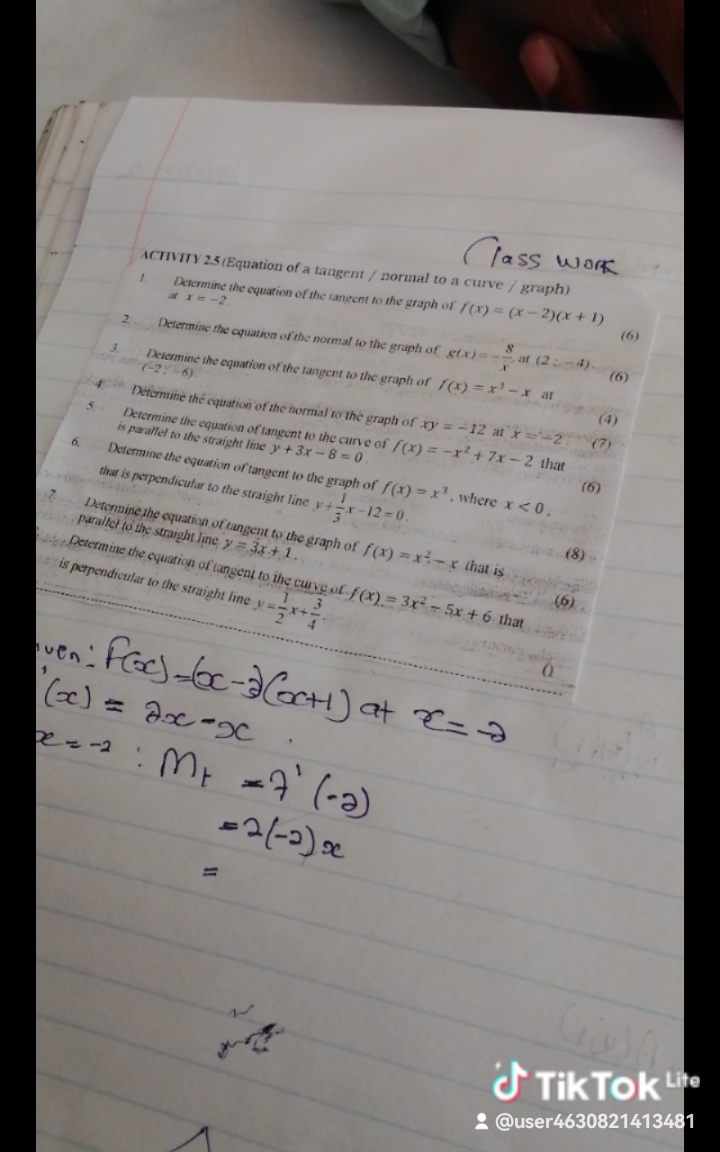 Class work
ACTIVITY 2.5 (Equation of a tangent / normal to a curve / graph)
1. Determine the equation of the tangent to the graph of f(x) = (x − 2)(x + 1)
at x = −2. (6)
2. Determine the equation of the normal to the graph of g(x) = −8/x, at (2 ; −4). (6)
3. Determine the equation of the tangent to the graph of f(x) = x³ − x at
(−2 ; −6). (4)
4. Determine the equation of the normal to the graph of xy = −12 at x = −2. (7)
5. Determine the equation of tangent to the curve of f(x) = −x² + 7x − 2 that
is parallel to the straight line y + 3x − 8 = 0. (6)
6. Determine the equation of tangent to the graph of f(x) = x³, where x < 0,
that is perpendicular to the straight line y + 1/3 x − 12 = 0. (8)
7. Determine the equation of tangent to the graph of f(x) = x² − x that is
parallel to the straight line y = 3x + 1. (6)
Determine the equation of tangent to the curve of f(x) = 3x² − 5x + 6 that
is perpendicular to the straight line y = 1/2 x + 3/4.
()
iven: f(x) = (x−2)(x+1) at x = −2
'(x) = 2x − x
x = −2 : Mt = f'(−2)
= 2(−2)x
=
TikTok Lite
@user4630821413481